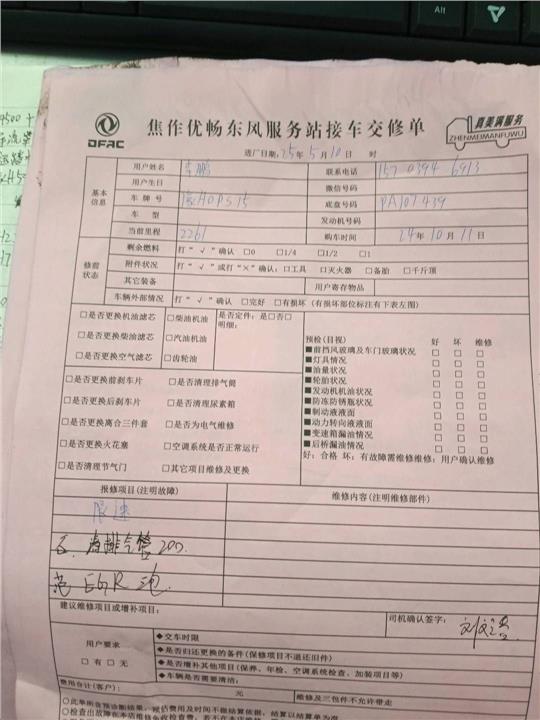 Alt
DFAC
焦作优畅东风服务站接车交修单
真美满服务
ZHENMEIMANFUWU
进厂日期: 25年 5月 10日 时
基本信息
用户姓名 李鹏 联系电话 157 0394 6913
用户生日 微信号码
车牌号 底盘号码 PA107439
车型 发动机号码
当前里程 2261 购车时间 24年10月11日
修前状态
剩余燃料 打“√”确认 □0 □1/4 □1/2 □1
附件状况 打“√”或打“×”确认: □工具 □灭火器 □备胎 □千斤顶
其它装备 用户寄存物品
车辆外部情况 打“√”确认 □完好 □有损坏 (有损坏部位标注有下表左图)
□是否更换机油滤芯 □柴油机油 是否定件: 是□否□
明细:
□是否更换柴油滤芯 □汽油机油
□是否更换空气滤芯 □齿轮油
□是否更换前刹车片 □是否清理排气筒
□是否更换后刹车片 □是否清理尿素箱
□是否更换离合三件套 □是否为电气维修
□是否更换火花塞 □空调系统是否正常运行
□是否清理节气门 □其它项目维修及更换
预检(目视) 好 坏 维修
■前挡风玻璃及车门玻璃状况 □ □ □
■灯具情况 □ □ □
■油量状况 □ □ □
■轮胎状况 □ □ □
■发动机机油状况 □ □ □
■防冻防锈瓶状况 □ □ □
■制动液液面 □ □ □
■动力转向液液面 □ □ □
■变速箱漏油情况 □ □ □
■后桥漏油情况 □ □ □
好: 合格 坏: 有故障需维修维修: 用户确认维修
报修项目(注明故障) 维修内容(注明维修部件)
限速
排气管 200
EGR
建议维修项目或增补项目:
司机确认签字:
用户要求
□有 □无
◆交车时限
◆是否归还更换的备件(保修项目不退还旧件)
◆是否增补其他项目(保养、年检、空调系统检查、加装项目等)
◆车辆是否需要清洁:
费用合计(客户): 元 维修及三包件不允许带走